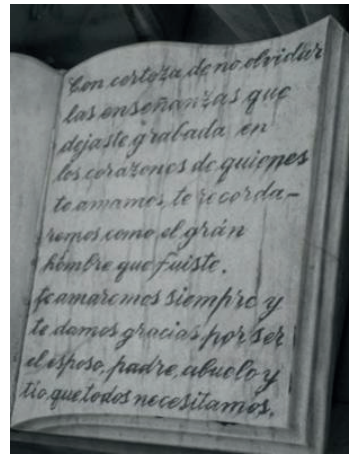 Con certeza de no olvidar
las enseñanzas que
dejaste grabada en
los corázones de quienes
te amamos, te recorda-
remos como el grán
hombre que fuiste.
te amaremos siempre y
te damos gracias por ser
el esposo, padre, abuelo y
tio, que todos necesitamos.